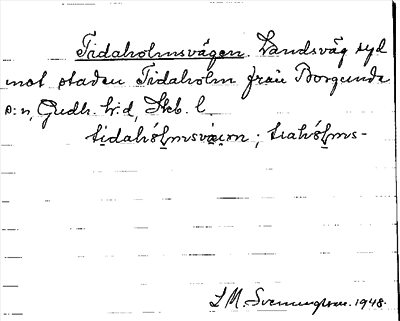 Tidaholmsvägen. Landsväg syd
mot staden Tidaholm från Borgunda
s:n, Gudh. h:d, Skb. l.
tidahólmsvæ̀ıɡn; tıahólms-
L. M. Svenungsson. 1948.